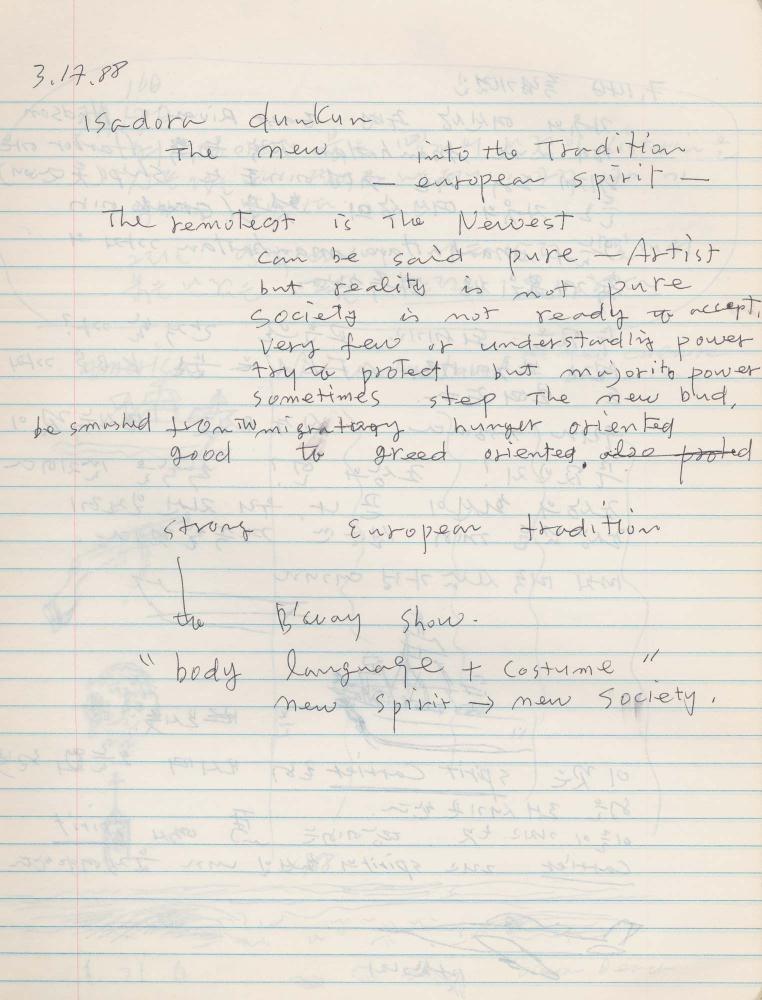 3.17.88
isadora dunkun
The new into the Tradition
— european spirit —
The remotest is The Newest
can be said pure — Artist
but reality is not pure
society is not ready to accept,
very few or understandig power
try to protect but majority power
sometimes step The new bud,
be smashed from migratory hunger oriented
good to greed oriented. also
strong European tradition
the B'way show.
" body language + costume "
new spirit → new society.